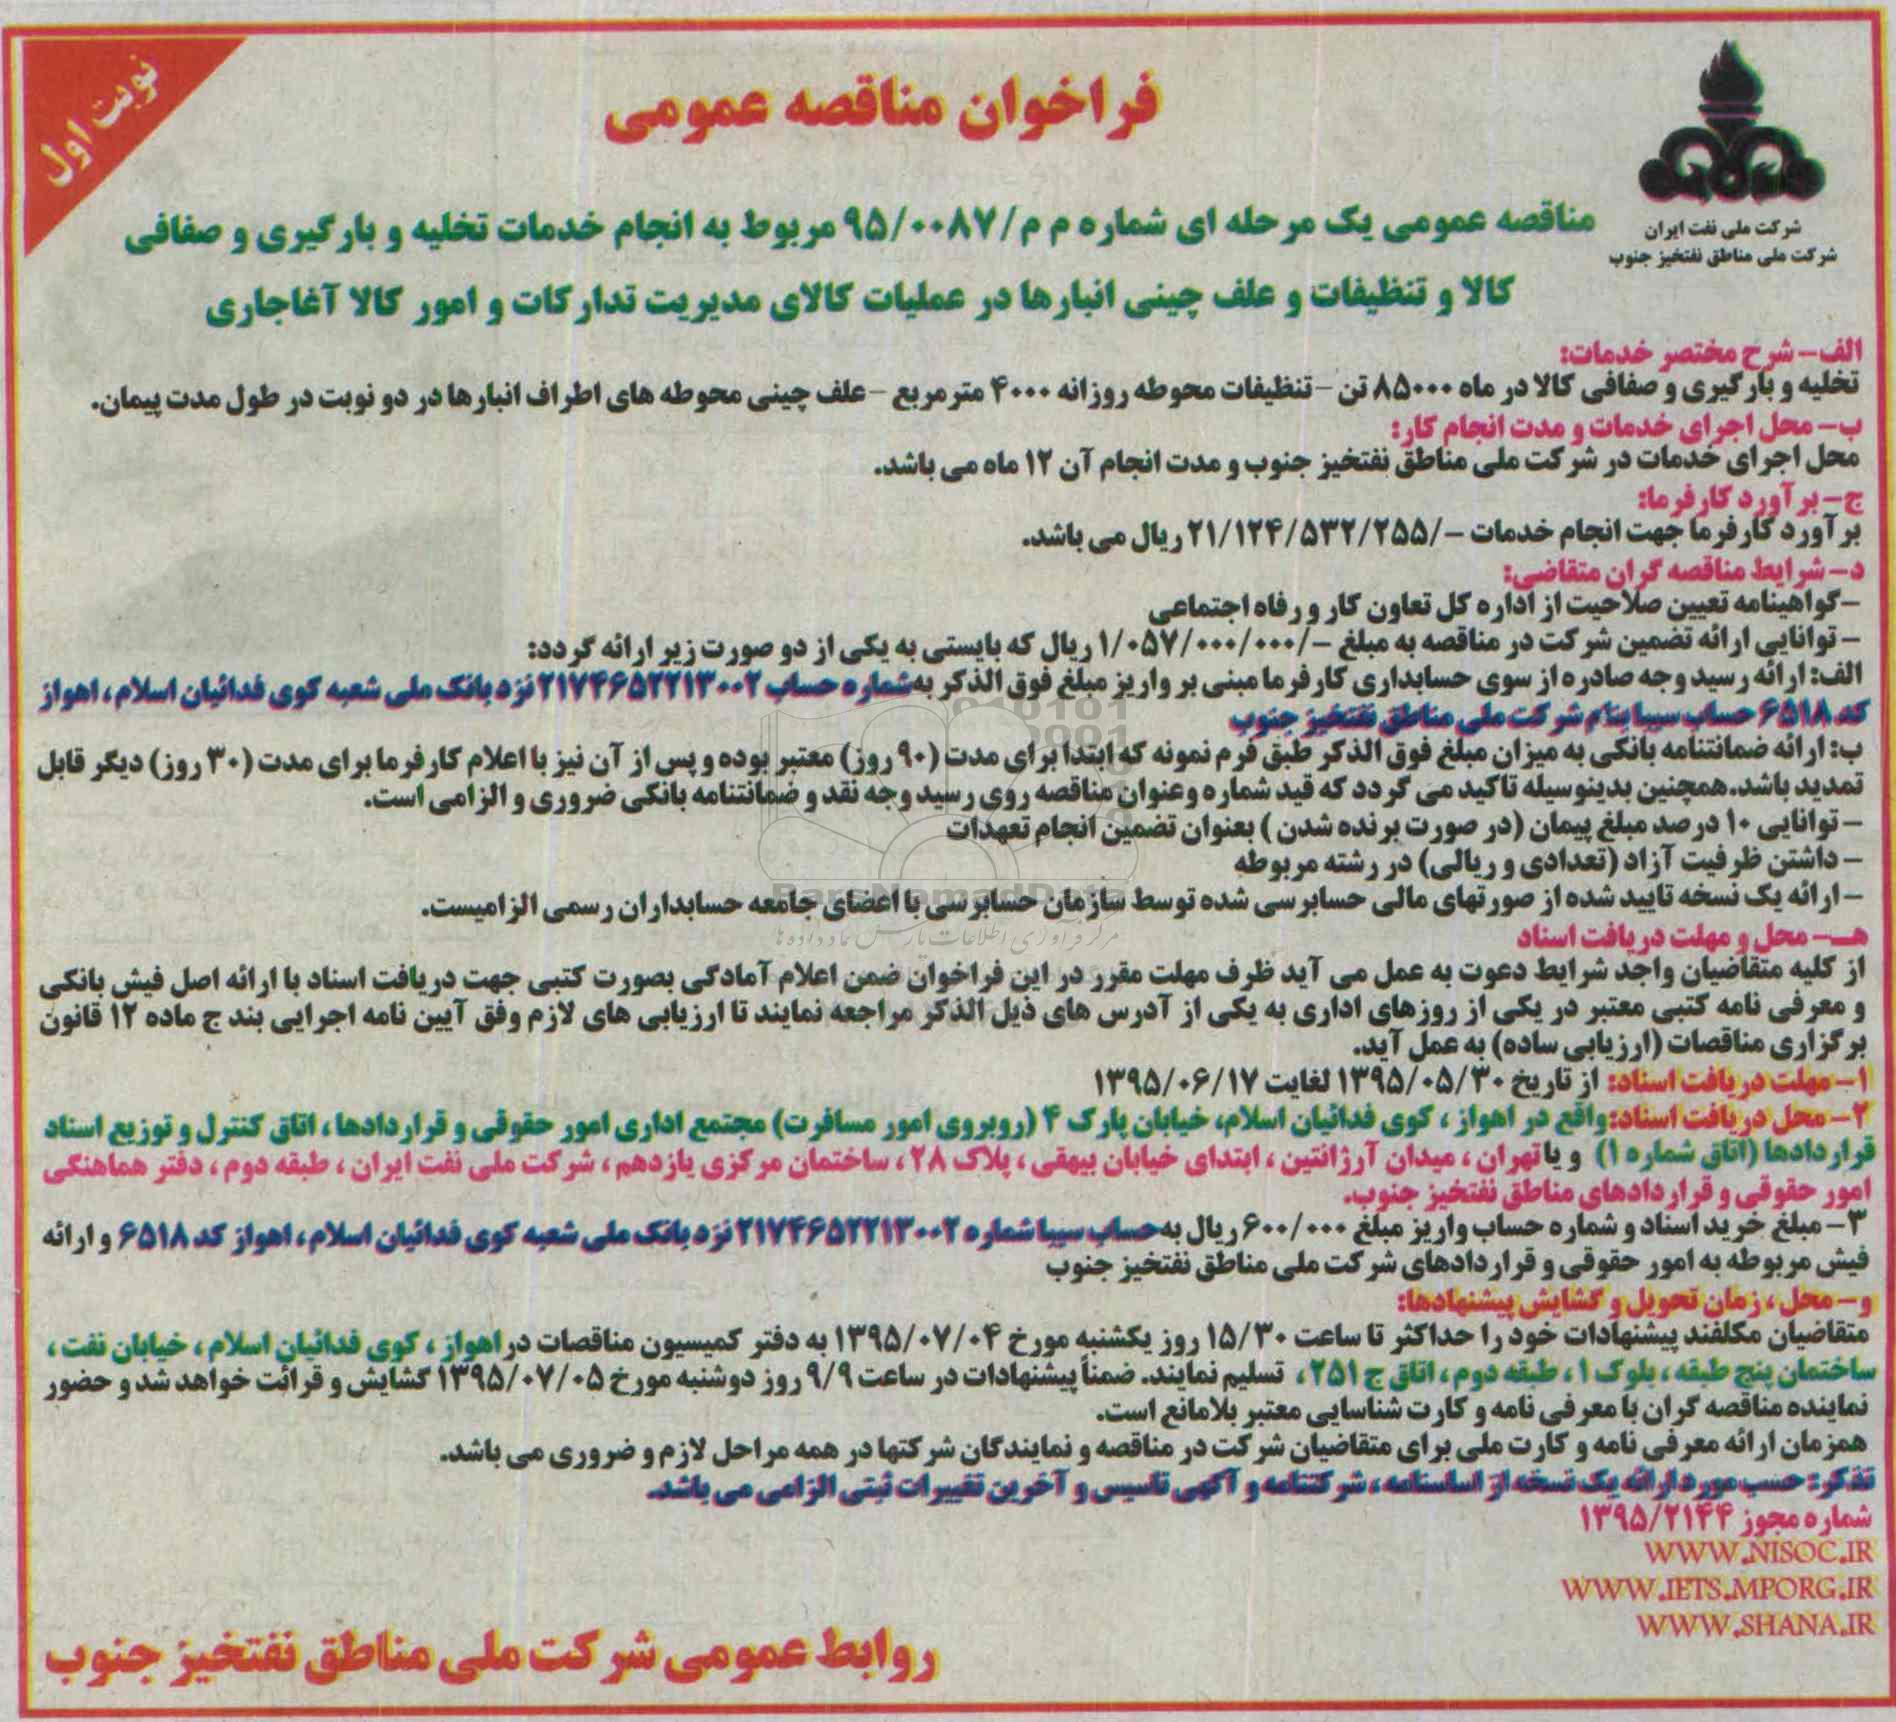 نوبت اول
فراخوان مناقصه عمومی
شرکت ملی نفت ایران
شرکت ملی مناطق نفتخیز جنوب
مناقصه عمومی یک مرحله ای شماره م م/۹۵/۰۰۸۷ مربوط به انجام خدمات تخلیه و بارگیری و صفافی
کالا و تنظیفات و علف چینی انبارها در عملیات کالای مدیریت تدارکات و امور کالا آغاجاری
الف- شرح مختصر خدمات:
تخلیه و بارگیری و صفافی کالا در ماه ۸۵۰۰۰ تن - تنظیفات محوطه روزانه ۴۰۰۰ مترمربع - علف چینی محوطه های اطراف انبارها در دو نوبت در طول مدت پیمان.
ب- محل اجرای خدمات و مدت انجام کار:
محل اجرای خدمات در شرکت ملی مناطق نفتخیز جنوب و مدت انجام آن ۱۲ ماه می باشد.
ج- برآورد کارفرما:
برآورد کارفرما جهت انجام خدمات -/۲۱/۱۲۴/۵۳۲/۲۵۵ ریال می باشد.
د- شرایط مناقصه گران متقاضی:
-گواهینامه تعیین صلاحیت از اداره کل تعاون کار و رفاه اجتماعی
- توانایی ارائه تضمین شرکت در مناقصه به مبلغ -/۱/۰۵۷/۰۰۰/۰۰۰ ریال که بایستی به یکی از دو صورت زیر ارائه گردد:
الف: ارائه رسید وجه صادره از سوی حسابداری کارفرما مبنی بر واریز مبلغ فوق الذکر به شماره حساب ۲۱۷۴۶۵۲۲۱۳۰۰۲ نزد بانک ملی شعبه کوی فدائیان اسلام ، اهواز
کد ۶۵۱۸ حساب سیبا بنام شرکت ملی مناطق نفتخیز جنوب
ب: ارائه ضمانتنامه بانکی به میزان مبلغ فوق الذکر طبق فرم نمونه که ابتدا برای مدت (۹۰ روز) معتبر بوده و پس از آن نیز با اعلام کارفرما برای مدت (۳۰ روز) دیگر قابل
تمدید باشد. همچنین بدینوسیله تاکید می گردد که قید شماره و عنوان مناقصه روی رسید وجه نقد و ضمانتنامه بانکی ضروری و الزامی است.
- توانایی ۱۰ درصد مبلغ پیمان (در صورت برنده شدن ) بعنوان تضمین انجام تعهدات
- داشتن ظرفیت آزاد (تعدادی و ریالی) در رشته مربوطه
ParsNamadData
- ارائه یک نسخه تایید شده از صورتهای مالی حسابرسی شده توسط سازمان حسابرسی یا اعضای جامعه حسابداران رسمی الزامیست.
هـ- محل و مهلت دریافت اسناد
از کلیه متقاضیان واجد شرایط دعوت به عمل می آید ظرف مهلت مقرر در این فراخوان ضمن اعلام آمادگی بصورت کتبی جهت دریافت اسناد با ارائه اصل فیش بانکی
و معرفی نامه کتبی معتبر در یکی از روزهای اداری به یکی از آدرس های ذیل الذکر مراجعه نمایند تا ارزیابی های لازم وفق آیین نامه اجرایی بند ج ماده ۱۲ قانون
برگزاری مناقصات (ارزیابی ساده) به عمل آید.
۱- مهلت دریافت اسناد: از تاریخ ۱۳۹۵/۰۵/۳۰ لغایت ۱۳۹۵/۰۶/۱۷
۲- محل دریافت اسناد: واقع در اهواز ، کوی فدائیان اسلام، خیابان پارک ۴ (روبروی امور مسافرت) مجتمع اداری امور حقوقی و قراردادها ، اتاق کنترل و توزیع اسناد
قراردادها (اتاق شماره ۱) و یا تهران ، میدان آرژانتین ، ابتدای خیابان بیهقی ، پلاک ۲۸ ، ساختمان مرکزی یازدهم ، شرکت ملی نفت ایران ، طبقه دوم ، دفتر هماهنگی
امور حقوقی و قراردادهای مناطق نفتخیز جنوب.
۳- مبلغ خرید اسناد و شماره حساب واریز مبلغ ۶۰۰/۰۰۰ ریال به حساب سیبا شماره ۲۱۷۴۶۵۲۲۱۳۰۰۲ نزد بانک ملی شعبه کوی فدائیان اسلام ، اهواز کد ۶۵۱۸ و ارائه
فیش مربوطه به امور حقوقی و قراردادهای شرکت ملی مناطق نفتخیز جنوب
و- محل ، زمان تحویل و گشایش پیشنهادها:
متقاضیان مکلفند پیشنهادات خود را حداکثر تا ساعت ۱۵/۳۰ روز یکشنبه مورخ ۱۳۹۵/۰۷/۰۴ به دفتر کمیسیون مناقصات در اهواز ، کوی فدائیان اسلام ، خیابان نفت ،
ساختمان پنج طبقه ، بلوک ۱ ، طبقه دوم ، اتاق ج ۲۵۱ ، تسلیم نمایند. ضمناً پیشنهادات در ساعت ۹/۹ روز دوشنبه مورخ ۱۳۹۵/۰۷/۰۵ گشایش و قرائت خواهد شد و حضور
نماینده مناقصه گران با معرفی نامه و کارت شناسایی معتبر بلامانع است.
همزمان ارائه معرفی نامه و کارت ملی برای متقاضیان شرکت در مناقصه و نمایندگان شرکتها در همه مراحل لازم و ضروری می باشد.
تذکر: حسب مورد ارائه یک نسخه از اساسنامه ، شرکتنامه و آگهی تاسیس و آخرین تغییرات ثبتی الزامی می باشد.
شماره مجوز ۱۳۹۵/۲۱۴۴
WWW.NISOC.IR
WWW.IETS.MPORG.IR
WWW.SHANA.IR
روابط عمومی شرکت ملی مناطق نفتخیز جنوب